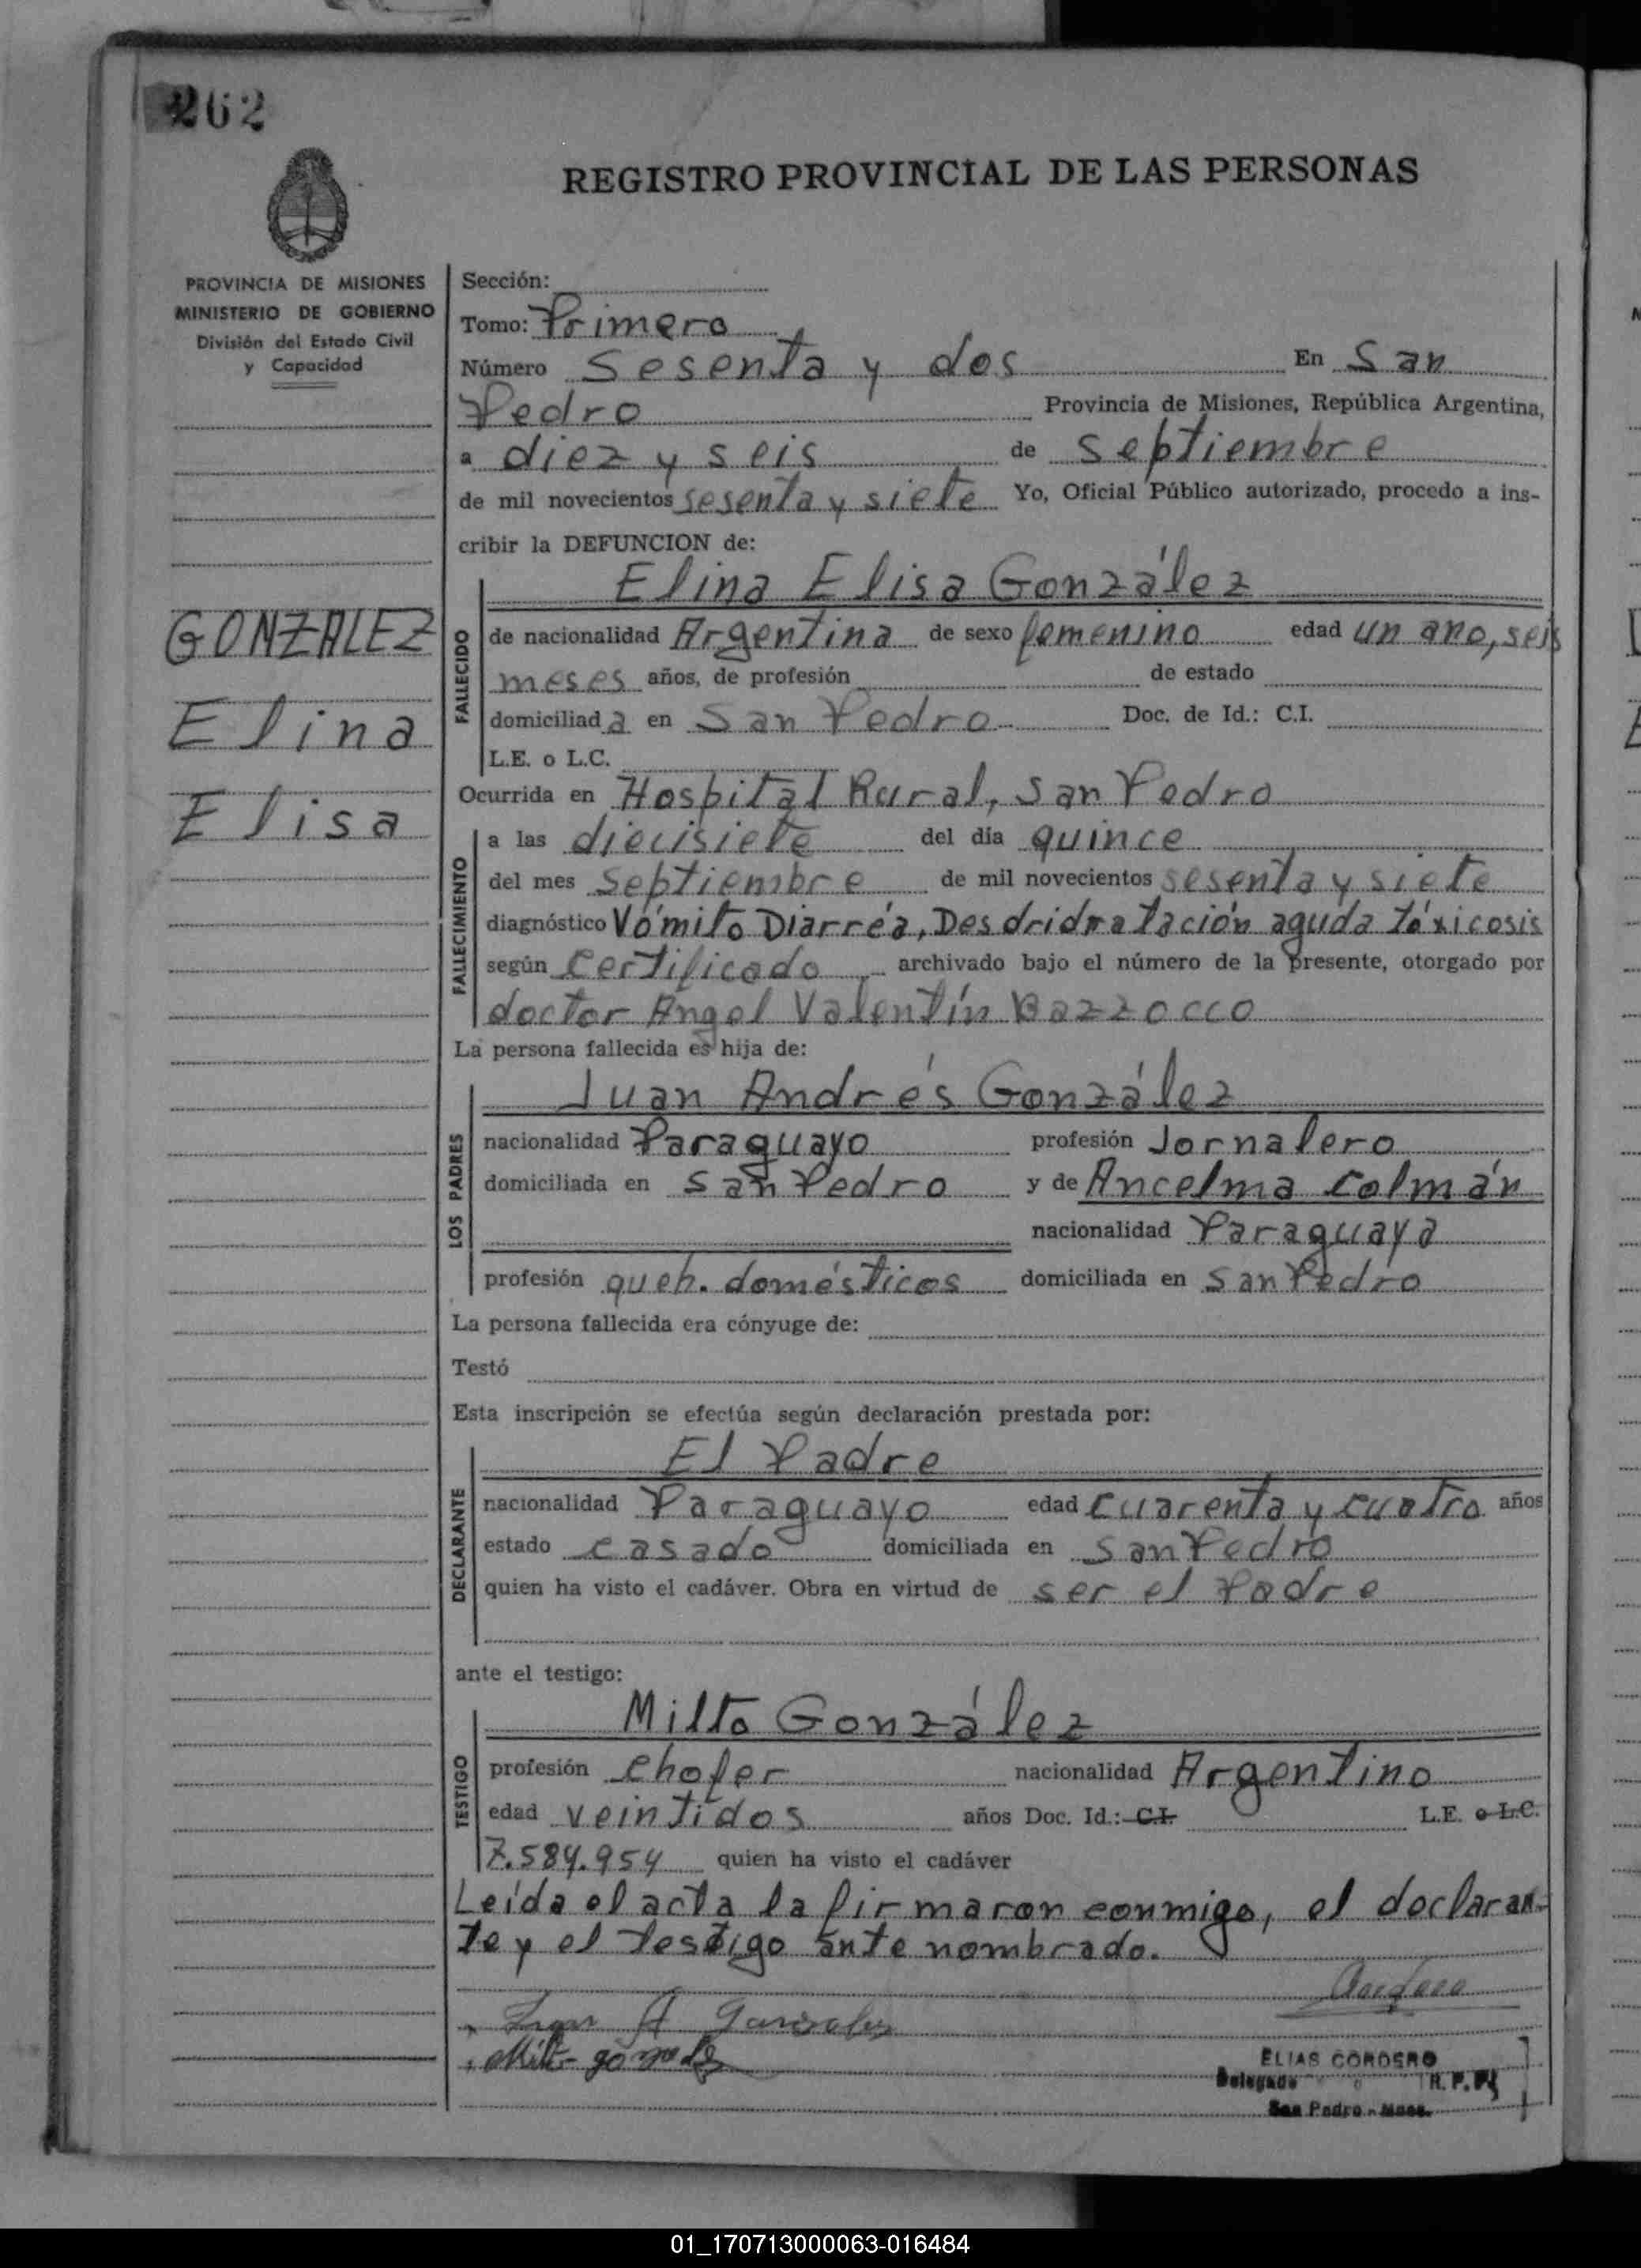 262
REGISTRO PROVINCIAL DE LAS PERSONAS
PROVINCIA DE MISIONES
MINISTERIO DE GOBIERNO
División del Estado Civil
y Capacidad
GONZALEZ
Elina
Elisa
Sección:
Tomo: Primero
Número Sesenta y dos En San
Pedro Provincia de Misiones, República Argentina,
a diez y seis de Septiembre
de mil novecientos sesenta y siete Yo, Oficial Público autorizado, procedo a ins-
cribir la DEFUNCION de:
Elina Elisa González
FALLECIDO
de nacionalidad Argentina de sexo femenino edad un ano, seis
meses años, de profesión de estado
domiciliada en San Pedro Doc. de Id.: C.I.
L.E. o L.C.
Ocurrida en Hospital Rural, San Pedro
FALLECIMIENTO
a las diecisiete del día quince
del mes Septiembre de mil novecientos sesenta y siete
diagnóstico Vómito Diarréa, Desdridratación aguda tóxicosis
según Certificado archivado bajo el número de la presente, otorgado por
doctor Angel Valentín Bazzocco
La persona fallecida es hija de:
Juan Andrés González
LOS PADRES
nacionalidad Paraguayo profesión Jornalero
domiciliada en San Pedro y de Ancelma Colmán
nacionalidad Paraguaya
profesión queh. domésticos domiciliada en San Pedro
La persona fallecida era cónyuge de:
Testó
Esta inscripción se efectúa según declaración prestada por:
El Padre
DECLARANTE
nacionalidad Paraguayo edad cuarenta y cuatro años
estado casado domiciliada en San Pedro
quien ha visto el cadáver. Obra en virtud de ser el Padre
ante el testigo:
Milto González
TESTIGO
profesión chofer nacionalidad Argentino
edad veintidos años Doc. Id.: C.I. L.E. o L.C.
7.584.954 quien ha visto el cadáver
Leída el acta la firmaron conmigo, el declaran-
te y el testigo ante nombrado.
Juan A Gonzalez
Milto gonzalez
ELIAS CORDERO
Delegado R. P. P.
San Pedro - Mnes.
01_170713000063-016484